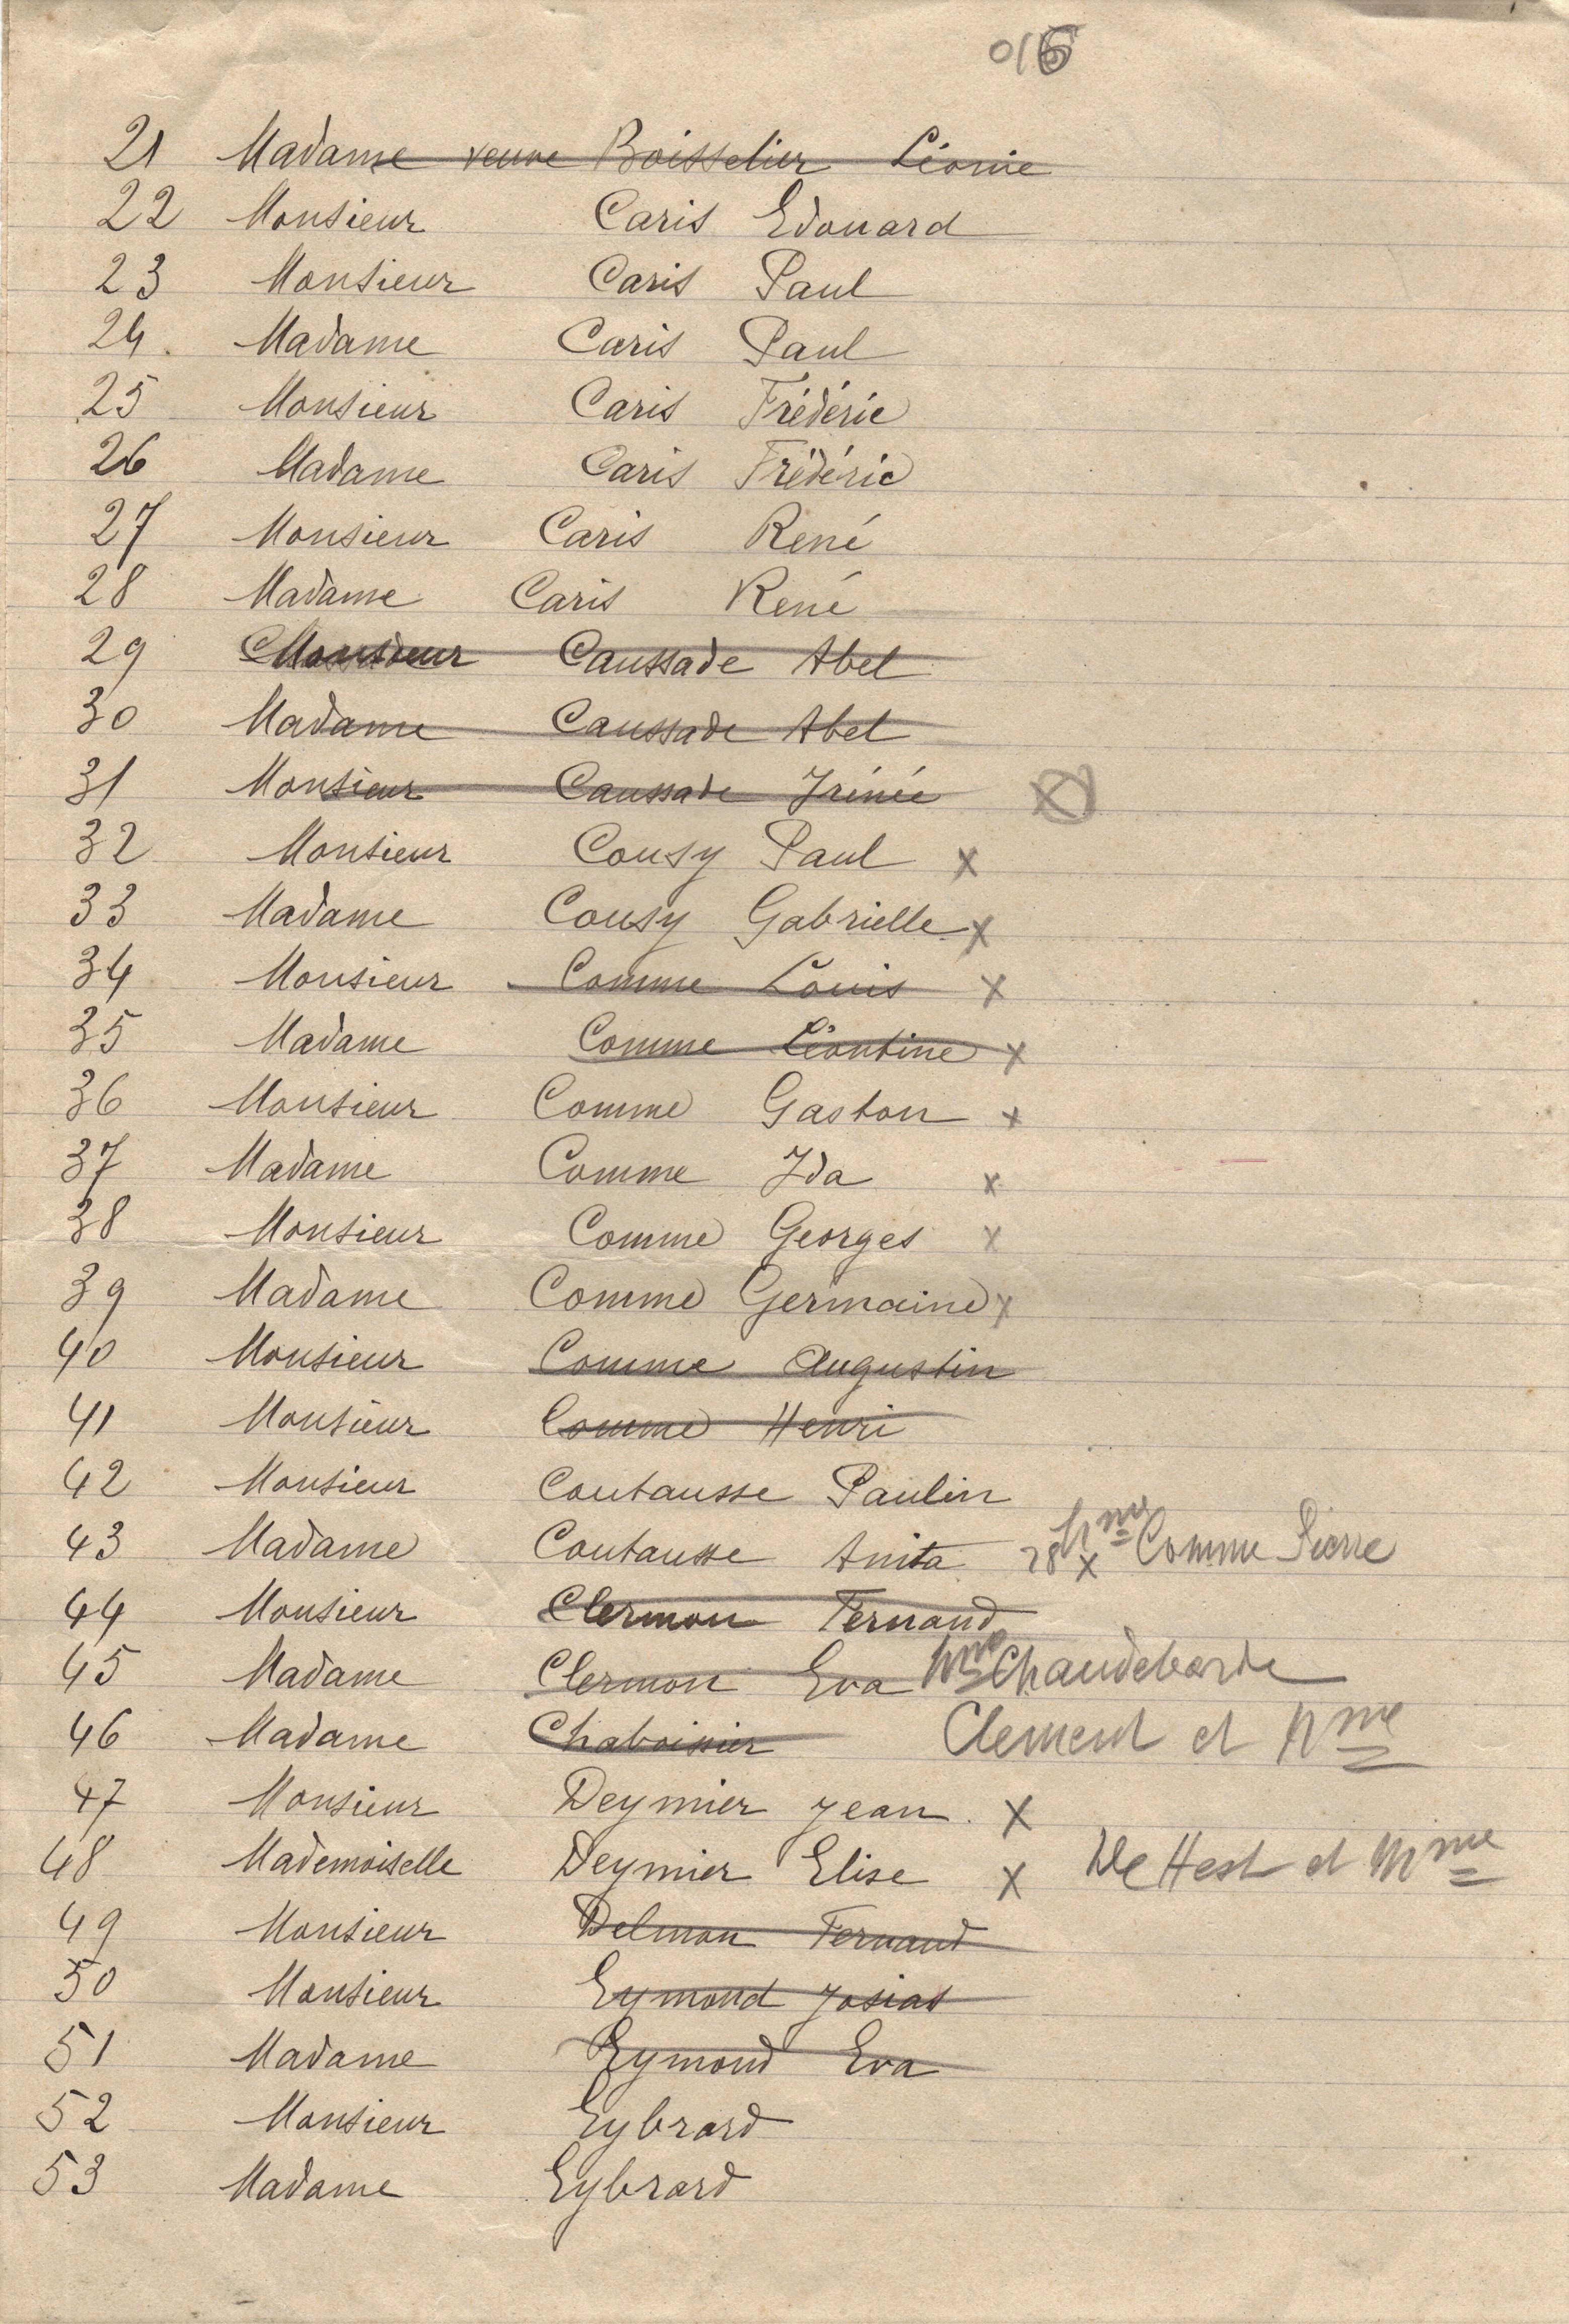 016
21 Madame veuve Boisselier Léonie
22 Monsieur Caris Edouard
23 Monsieur Caris Paul
24 Madame Caris Paul
25 Monsieur Caris Frédéric
26 Madame Caris Frédéric
27 Monsieur Caris René
28 Madame Caris René
29 Monsieur Caussade Abel
30 Madame Caussade Abel
31 Monsieur Caussade Irénée X
32 Monsieur Cousy Paul X
33 Madame Cousy Gabrielle X
34 Monsieur Comme Louis X
35 Madame Comme Léontine X
36 Monsieur Comme Gaston X
37 Madame Comme Ida X
38 Monsieur Comme Georges X
39 Madame Comme Germaine X
40 Monsieur Comme Augustin
41 Monsieur Comme Henri
42 Monsieur Coutausse Paulin
43 Madame Coutausse Anita 28 X Mme Comme Pierre
44 Monsieur Clermon Fernand
45 Madame Clermon Eva Chaudeborde
46 Madame Chaboissier Clement et Mme
47 Monsieur Deymier Jean X
48 Mademoiselle Deymier Elise X De Hest et Mme
49 Monsieur Delmon Fernand
50 Monsieur Eymond Josias
51 Madame Eymond Eva
52 Monsieur Eybrard
53 Madame Eybrard